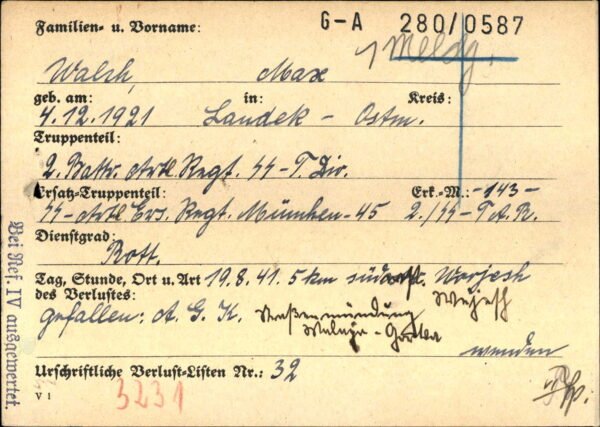 Familien- u. Vorname: G-A 280/0587
Meldg.
Walch, Max
geb. am: in: Kreis:
4.12.1921 Landek - Ostm.
Truppenteil:
2. Battr. Artl. Regt. SS-T. Div.
Ersatz-Truppenteil: Erk.-M.: -143-
SS-Artl. Ers. Regt. München-45 2./SS-T.A.R.
Dienstgrad:
Rott.
Tag, Stunde, Ort u. Art 19.8.41. 5 km südostw.
des Verlustes:
gefallen: A. G. K. Straßenmündung
wenden
Urschriftliche Verlust-Listen Nr.: 32
V 1 3231
Bei Ref. IV ausgewertet.